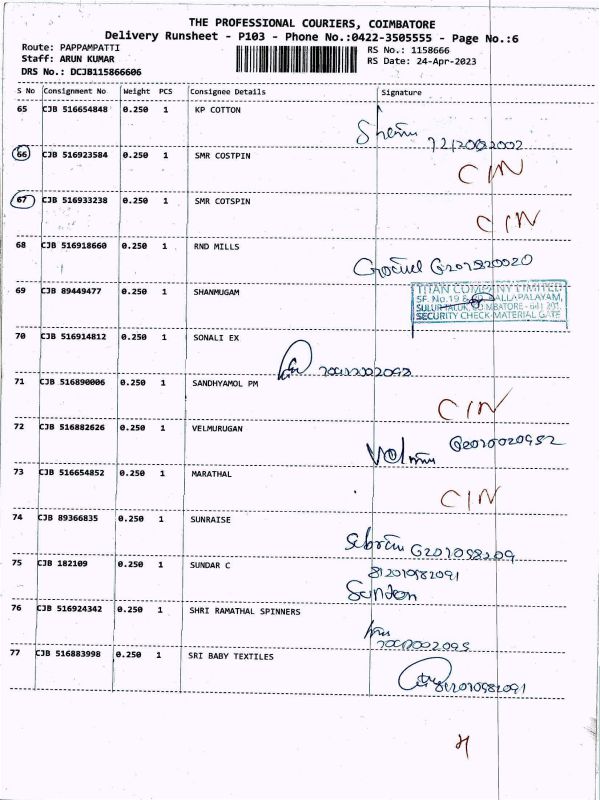 THE PROFESSIONAL COURIERS, COIMBATORE
Delivery Runsheet - P103 - Phone No.:0422-3505555 - Page No.:6
Route: PAPPAMPATTI
RS No.: 1158666
Staff: ARUN KUMAR
RS Date: 24-Apr-2023
DRS No.: DCJB115866606
S No Consignment No Weight PCS Consignee Details Signature
65 CJB 516654848 0.250 1 KP COTTON
66 CJB 516923584 0.250 1 SMR COSTPIN
CIN
67 CJB 516933238 0.250 1 SMR COTSPIN
CIN
68 CJB 516918660 0.250 1 RND MILLS
69 CJB 89449477 0.250 1 SHANMUGAM
TITAN COMPANY LIMITED
SECURITY CHECK-MATERIAL GATE
70 CJB 516914812 0.250 1 SONALI EX
71 CJB 516890006 0.250 1 SANDHYAMOL PM
CIN
72 CJB 516882626 0.250 1 VELMURUGAN
73 CJB 516654852 0.250 1 MARATHAL
CIN
74 CJB 89366835 0.250 1 SUNRAISE
75 CJB 182109 0.250 1 SUNDAR C
76 CJB 516924342 0.250 1 SHRI RAMATHAL SPINNERS
77 CJB 516883998 0.250 1 SRI BABY TEXTILES